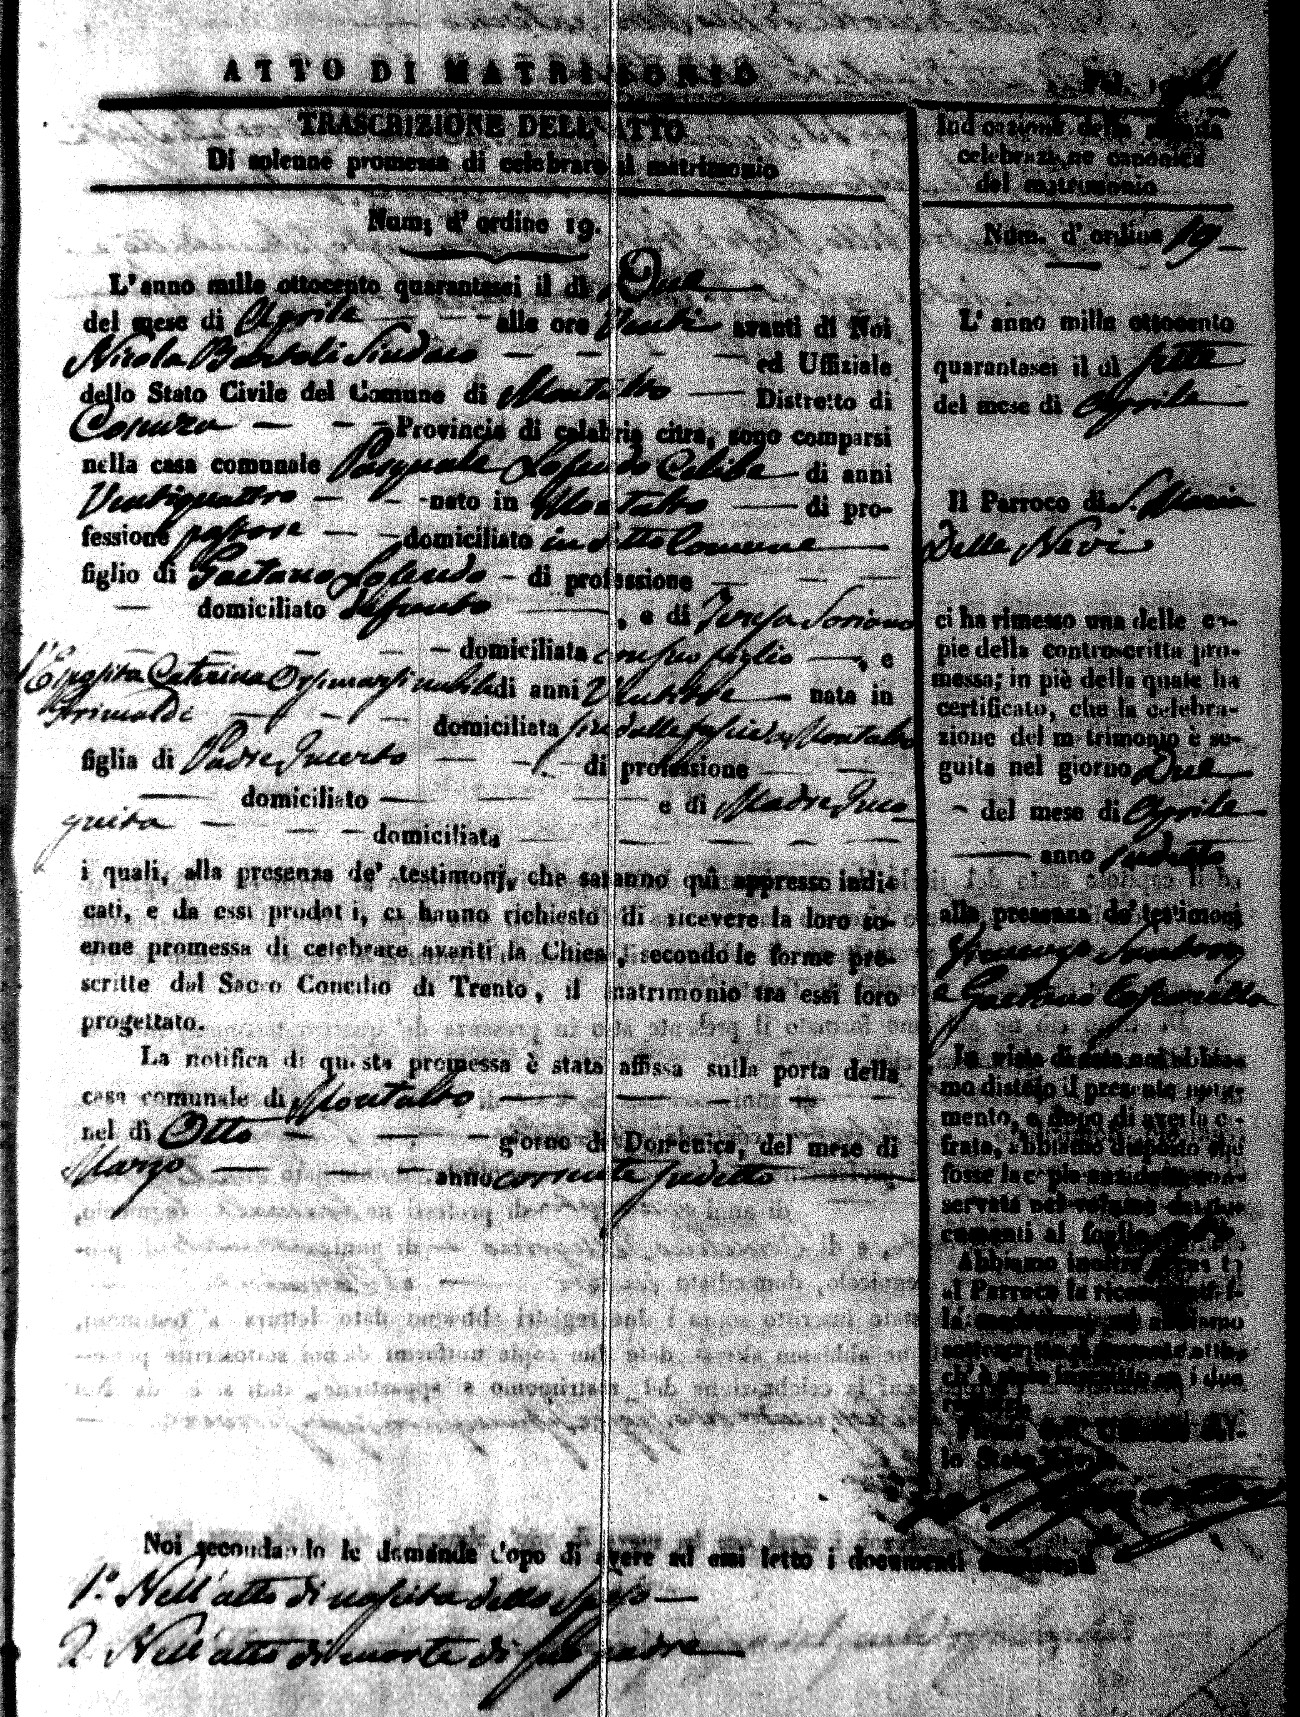 ATTO DI MATRIMONIO
TRASCRIZIONE DELL'ATTO
Di solenne promessa di celebrare il matrimonio
Num; d'ordine 19.
L'anno mille ottocento quarantasei il dì Due
del mese di Aprile alle ore Venti avanti di Noi
Nicola Bartoli Sindaco ed Uffiziale
dello Stato Civile del Comune di Montalto Distretto di
Cosenza Provincia di calabria citra, sono comparsi
nella casa comunale Pasquale Celibe di anni
Ventiquattro nato in Montalto di pro-
fessione pastore domiciliato in detto Comune
figlio di Gaetano di professione
domiciliato defunto , e di Teresa Soriano
domiciliata con suo figlio , e
l'Esposita Caterina nubile di anni nata in
Grimaldi domiciliata in Montalto
figlia di Padre Incerto di professione
domiciliato e di Madre Inco
gnita domiciliata
i quali, alla presenza de' testimonj, che saranno quì appresso indi-
cati, e da essi prodotti, ci hanno richiesto di ricevere la loro so-
enne promessa di celebrare avanti la Chiesa, secondo le forme pre-
scritte dal Sacro Concilio di Trento, il matrimonio tra essi loro
progettato.
La notifica di questa promessa è stata affissa sulla porta della
casa comunale di Montalto
nel dì Otto giorno di Domenica, del mese di
Marzo anno corrente sudetto
Noi secondando le domande dopo di avere ad essi letto i documenti
1.° Nell'atto di nascita dello Sposo
2. Nell'atto di morte di suo padre
Indicazione della seguita
celebrazione canonica
del matrimonio
Núm. d'ordine 19
L'anno mille ottocento
quarantasei il dì sette
del mese di Aprile
Il Parroco di S. Maria
della Nevi
ci ha rimesso una delle co-
pie della controscritta pro-
messa; in piè della quale ha
certificato, che la celebra-
zione del matrimonio è se-
guita nel giorno Due
del mese di Aprile
anno sudetto
alla presenza de' testimoni
e Gaetano
In vista di essa noi abbia-
mo disteso il presente notam-
mento, e dopo di averla ci-
frata, abbiamo disposto che
fosse la copia anzidetta con-
servata nel volume dei do-
cumenti al foglio
Abbiamo inoltre
al Parroco la ricevuta
lo Stato Civile.